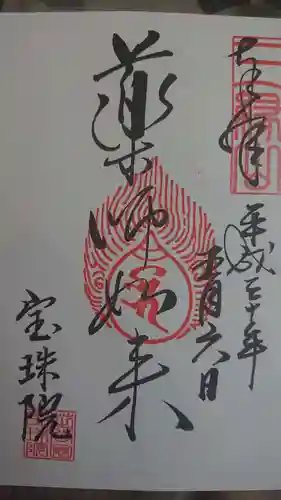 奉拝
平成三十年
十月六日
薬師如来
宝珠院